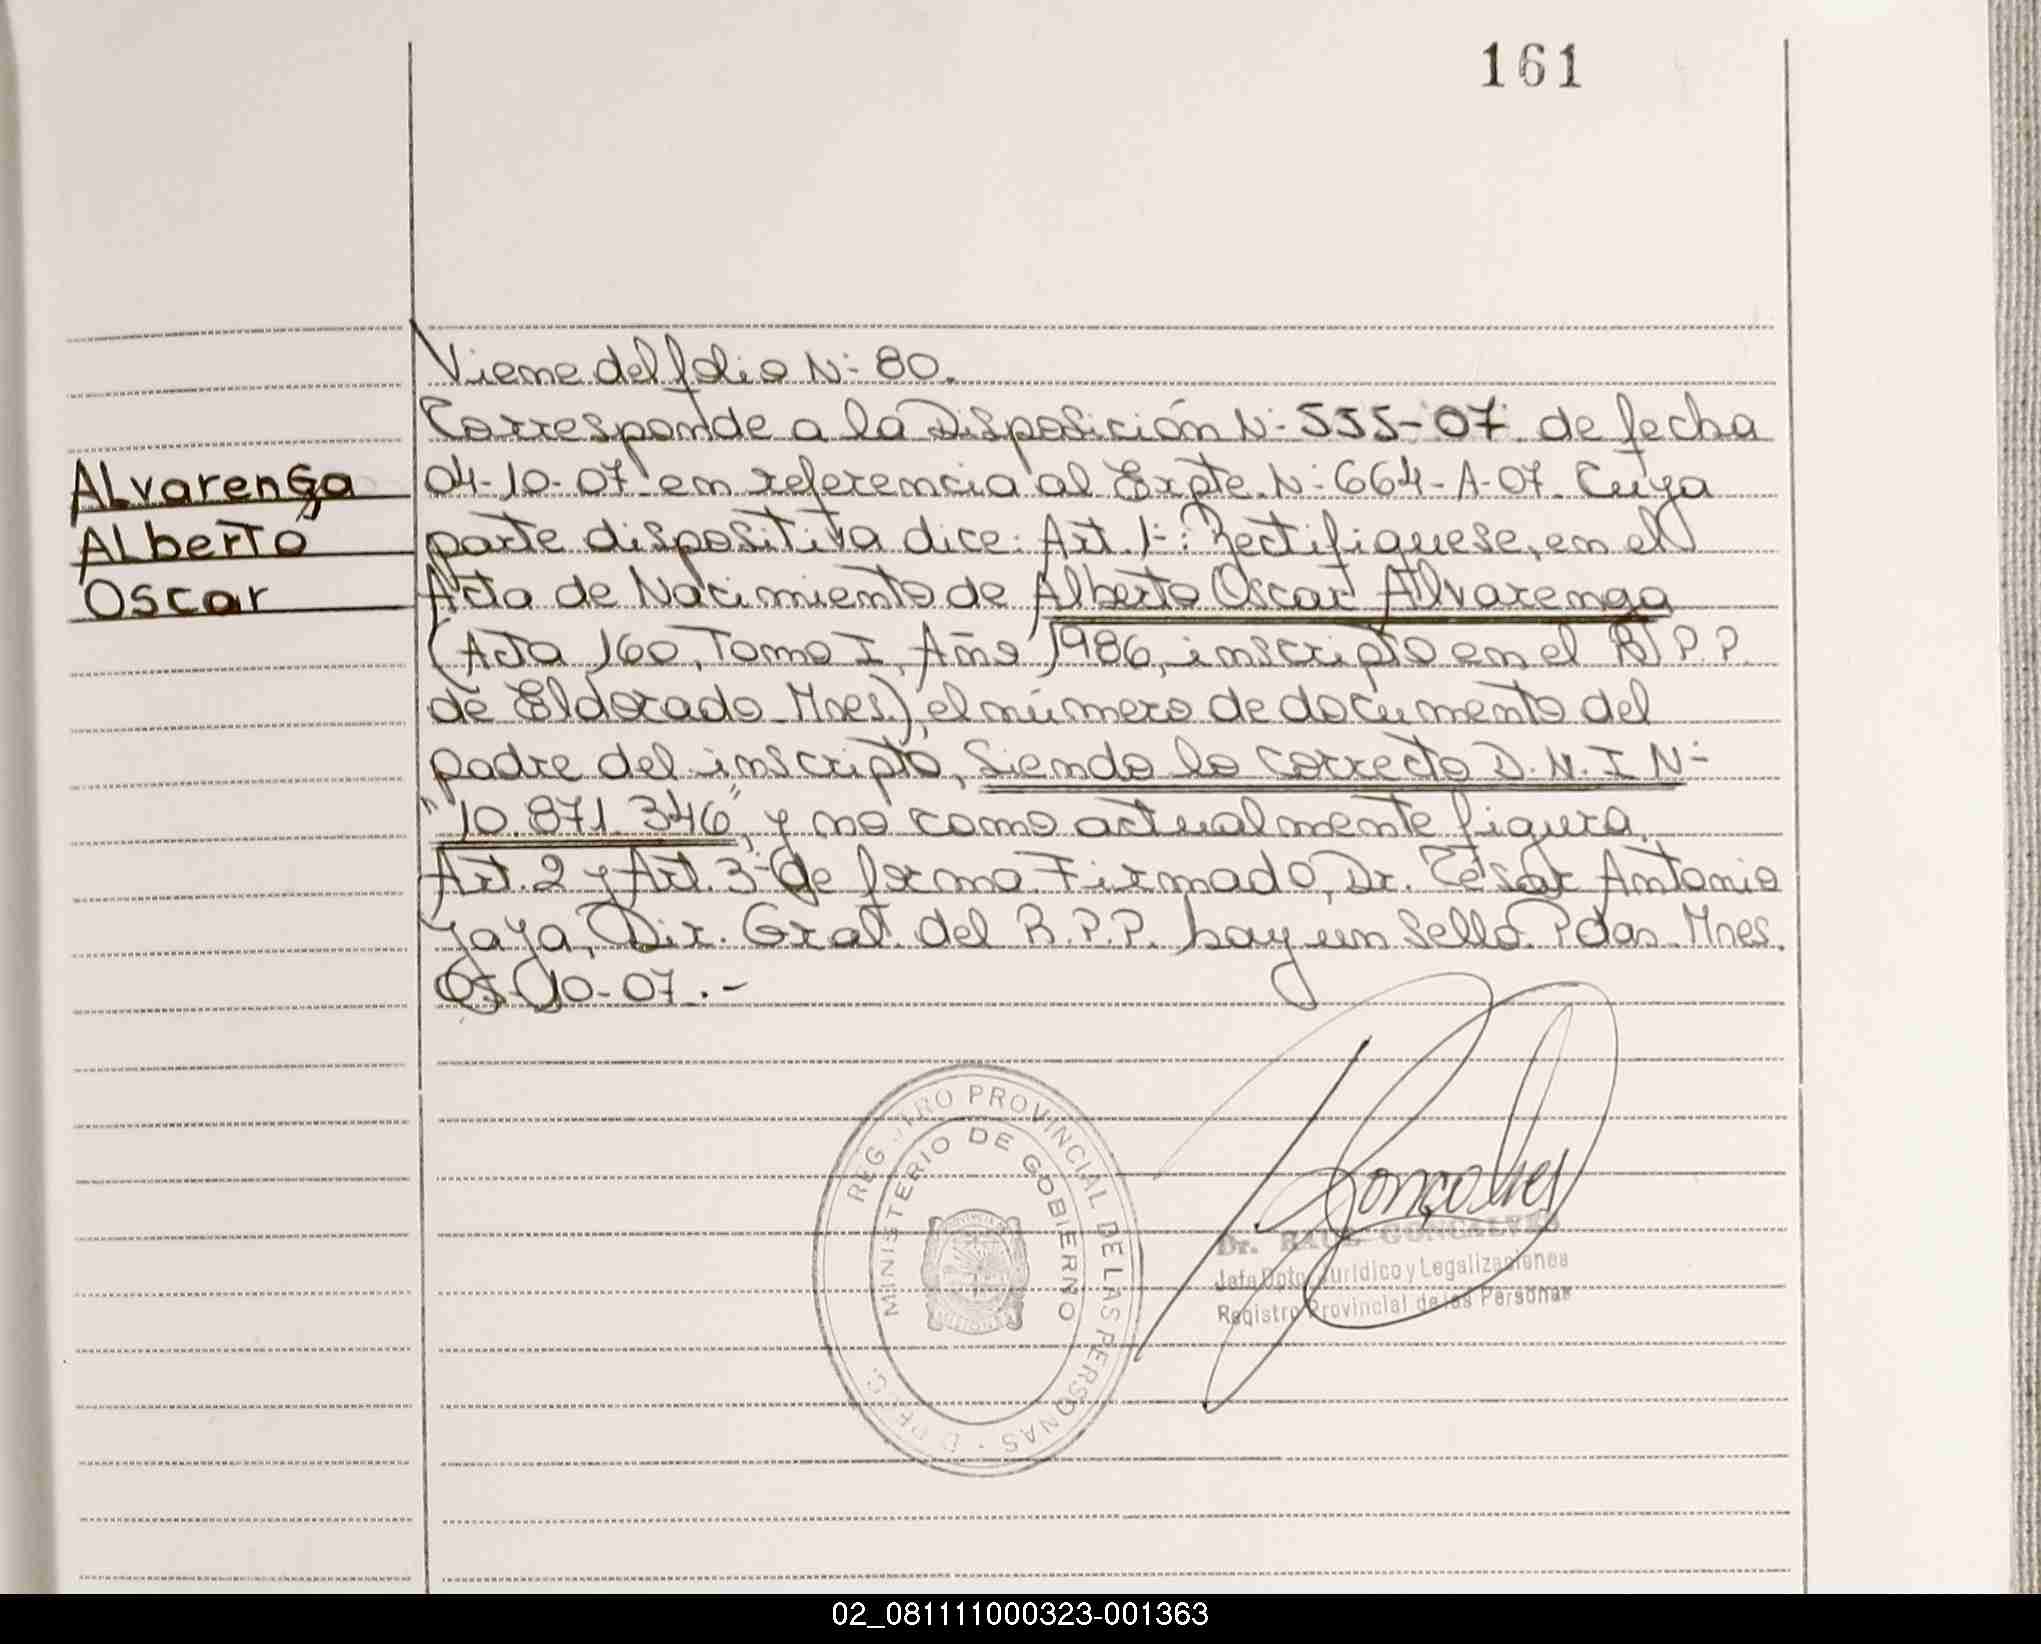 161
Alvarenga
Alberto
Oscar
Viene del folio N: 80.
Corresponde a la Disposición N: 555-07 de fecha
04-10-07 en referencia al Expte. N: 664-A-07. Cuya
parte dispositiva dice: Art. 1-: Rectifiquese, en el
Acta de Nacimiento de Alberto Oscar Alvarenga
(Acta 160, Tomo I, Año 1986, inscripto en el R.P.P.
de Eldorado-Mnes.), el número de documento del
padre del inscripto, siendo lo correcto D.N.I N-
"10.871.346", y no como actualmente figura.
Art. 2 y Art. 3- de forma. Firmado, Dr. César Antonio
Yaya, Dir. Gral. del R.P.P. hay un sello. Pdas. Mnes.
05-10-07.-
REGISTRO PROVINCIAL DE LAS PERSONAS -
MINISTERIO DE GOBIERNO
MISIONES
Goncalves
Dr. RAUL GONCALVES
Jefe Dpto. Jurídico y Legalizaciones
Registro Provincial de las Personas
02_081111000323-001363